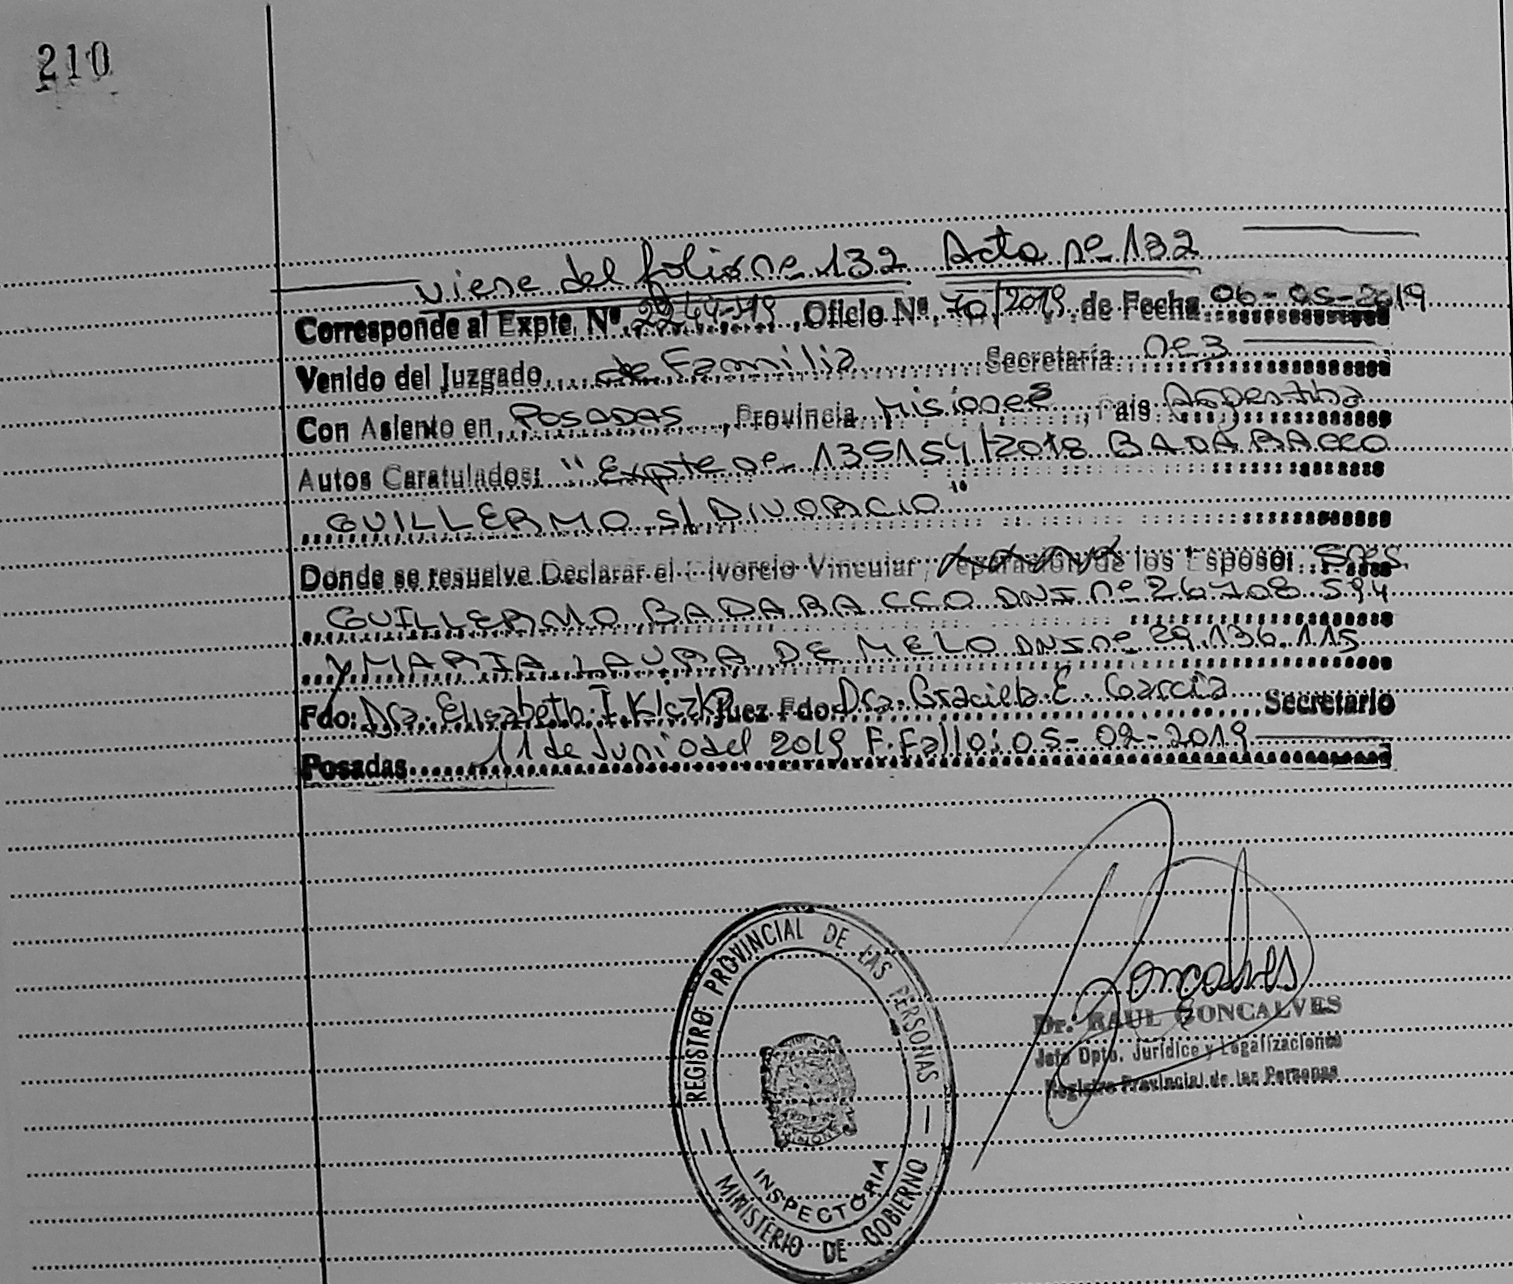 210
viene del folio nº 132 Acta nº 132
Corresponde al Expte. Nº 2944-19, Oficio Nº 70/2019 de Fecha 06-05-2019
Venido del Juzgado de Familia Secretaría nº3
Con Asiento en POSADAS, Provincia Misiones, País Argentina
Autos Caratulados: "Expte nº 135154/2018 BADARACCO
GUILLERMO S/ DIVORCIO"
Donde se resuelve Declarar el Divorcio Vincular, Separación de los Esposos: Sres.
GUILLERMO BADARACCO DNI nº 26.708.594
y MARIA LAURA DE MELO DNI nº 29.136.115
Fdo: Dra. Elisabeth I. Kiczka Juez Fdo: Dra. Graciela E. García Secretario
Posadas 11 de Junio del 2019 F. Fallo: 05-02-2019
REGISTRO PROVINCIAL DE LAS PERSONAS
INSPECTORIA
MINISTERIO DE GOBIERNO
Goncalves
Dr. RAUL GONCALVES
Jefe Dpto. Jurídico y Legalizaciones
Registro Provincial de las Personas